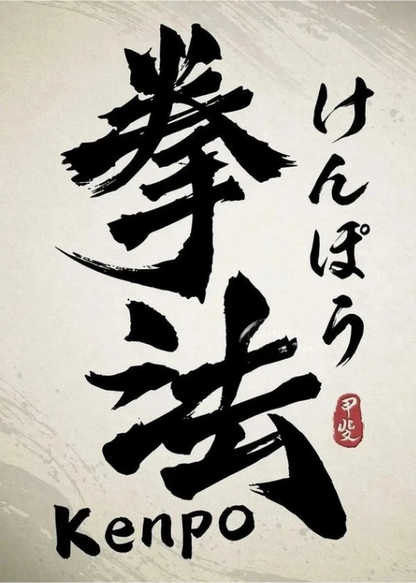 拳法
けんぽう
甲斐
Kenpo